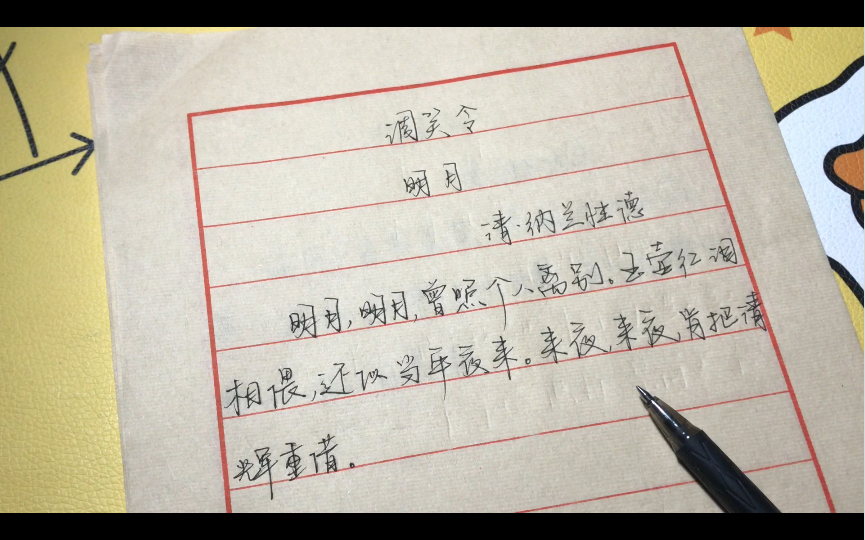 调关令
明月
清·纳兰性德
明月,明月,曾照个人离别。玉壶红泪
相偎,还似当年夜来。来夜,来夜,肯把清
辉重借。